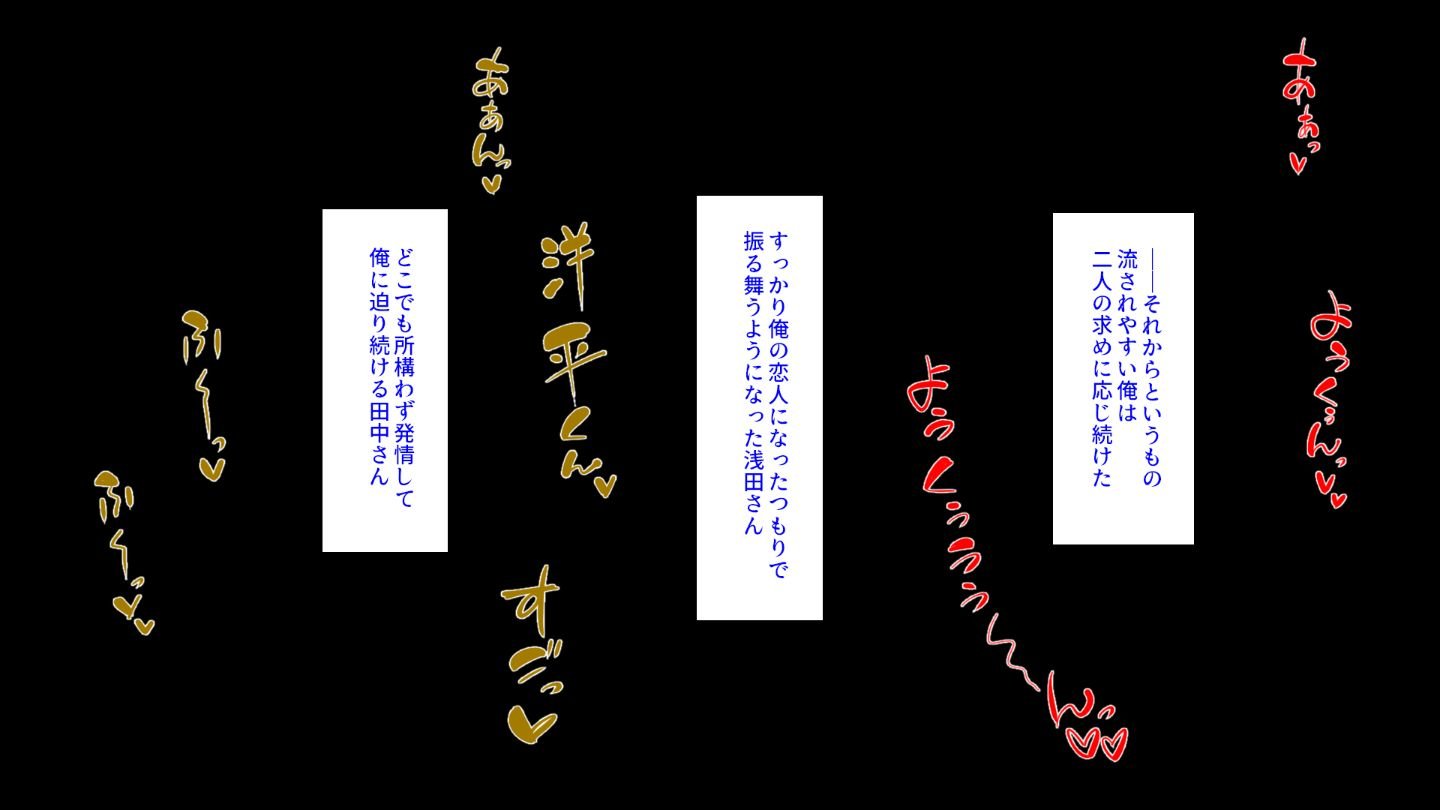 ああぁっ♥
ようくぅんっ♥♥
―――それからというもの
流されやすい俺は
二人の求めに応じ続けた
ようくぅううぅ~んっ♥♥
すっかり俺の恋人になったつもりで
振る舞うようになった浅田さん
あぁんっ♥
洋平くん♥
すごっ♥
どこでも所構わず発情して
俺に迫り続ける田中さん
ふ~っ♥
ふ~っ♥♥